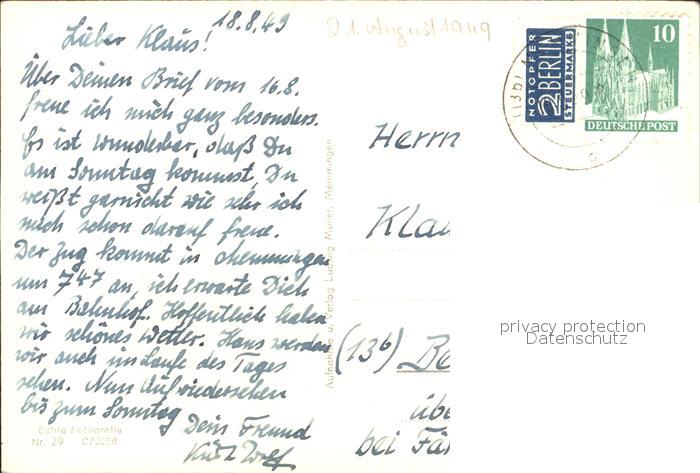 18.8.49
Lieber Klaus!
Über Deinen Brief vom 16.8.
freue ich mich ganz besonders.
Es ist wunderbar, daß Du
am Sonntag kommst, Du
weißt garnicht wie sehr ich
mich schon darauf freue.
Der Zug kommt in Memmingen
um 7 47 an, ich erwarte Dich
am Bahnhof. Hoffentlich haben
wir schönes Wetter. Hans werden
wir auch im Laufe des Tages
sehen. Nun Aufwiedersehen
bis zum Sonntag
Dein Freund
Echte Fotografie
Nr. 29 C/2258
Aufnahme u. Verlag Ludwig Müller, Memmingen
21. August 1949
NOTOPFER
2 BERLIN
STEUERMARKE
10
DEUTSCHE POST
(13b)
Herrn
Klau
(13b) Be
übe
bei Fä
privacy protection
Datenschutz